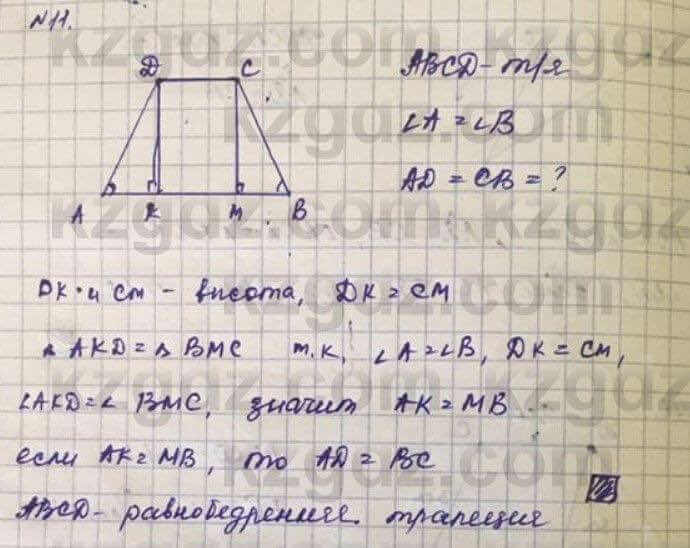 N11.
D C
ABCD - тр/я
∠A = ∠B
AD = CB = ?
A K M B
DK и CM - висота, DK = CM
△ AKD = △ BMC т.к. ∠A = ∠B, DK = CM,
∠AKD = ∠ BMC, значит AK = MB
если AK = MB, то AD = BC
ABCD - равнобедренная трапеция
kzgdz.com